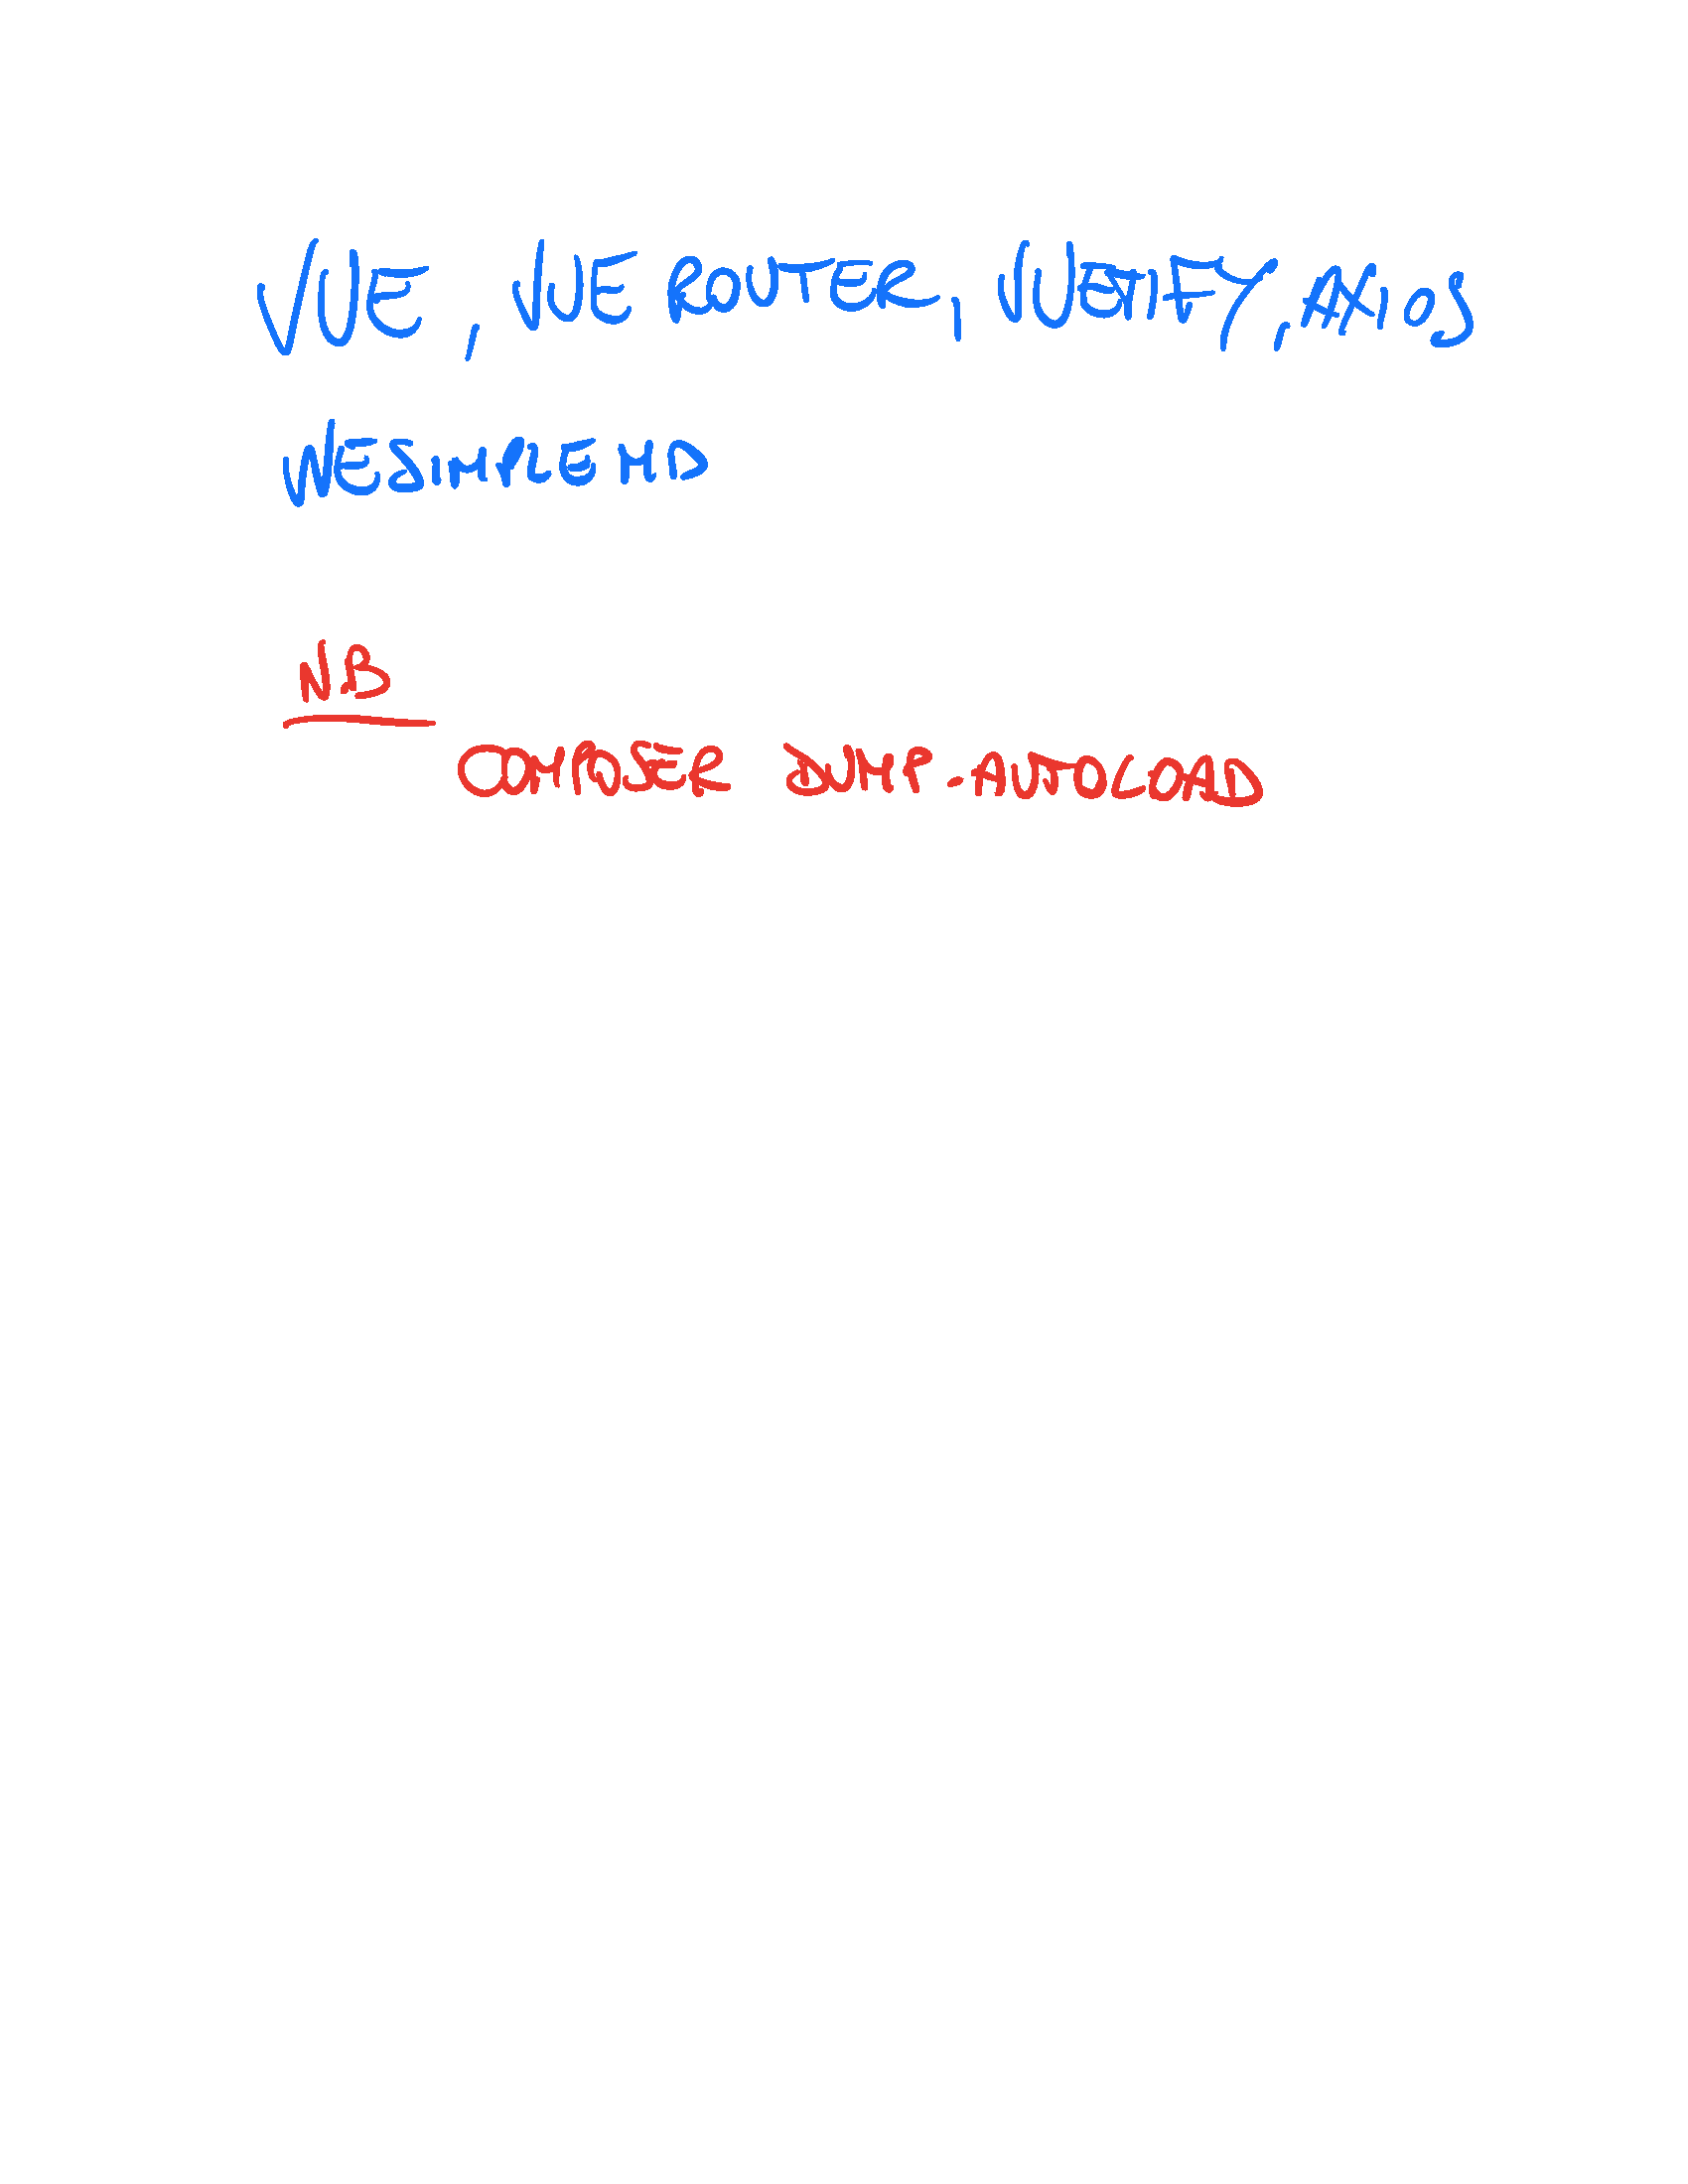 VUE, VUE ROUTER, VUETIFY, AXIOS
VUESIMPLEMD
N.B
COMPOSER DUMP-AUTOLOAD